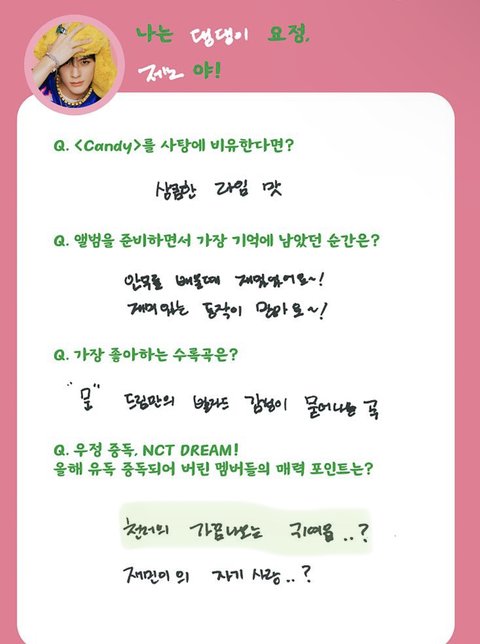 나는 댕댕이 요정,
제노 야!
Q. <Candy>를 사탕에 비유한다면?
상큼한 라임 맛
Q. 앨범을 준비하면서 가장 기억에 남았던 순간은?
안무를 배울때 재밌었어요~!
재미있는 동작이 많아요~!
Q. 가장 좋아하는 수록곡은?
"물" 드림만의 발라드 감성이 묻어나는 곡
Q. 우정 중독, NCT DREAM!
올해 유독 중독되어 버린 멤버들의 매력 포인트는?
천러의 가끔나오는 귀여움..?
재민이의 자기 사랑..?